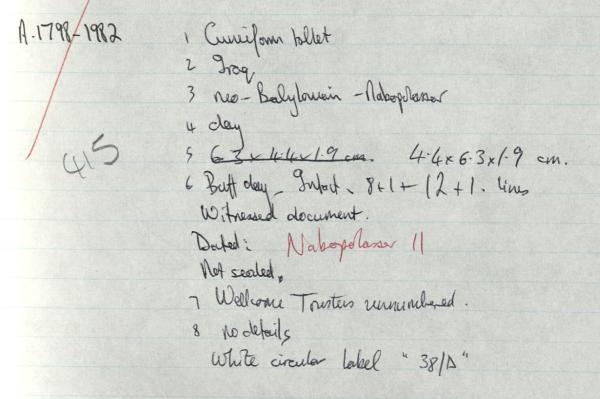 A.1798-1982
1 Cuneiform tablet
2 Iraq
3 neo-Babylonian - Nabopolassar
4 clay
415
5 6.3 x 4.4 x 1.9 cm. 4.4 x 6.3 x 1.9 cm.
6 Buff clay - Intact. 8+1+12+1. lines
Witnessed document.
Dated: Nabopolassar 11
Not sealed.
7 Wellcome Trustees unnumbered.
8 no details
White circular label "38/A"